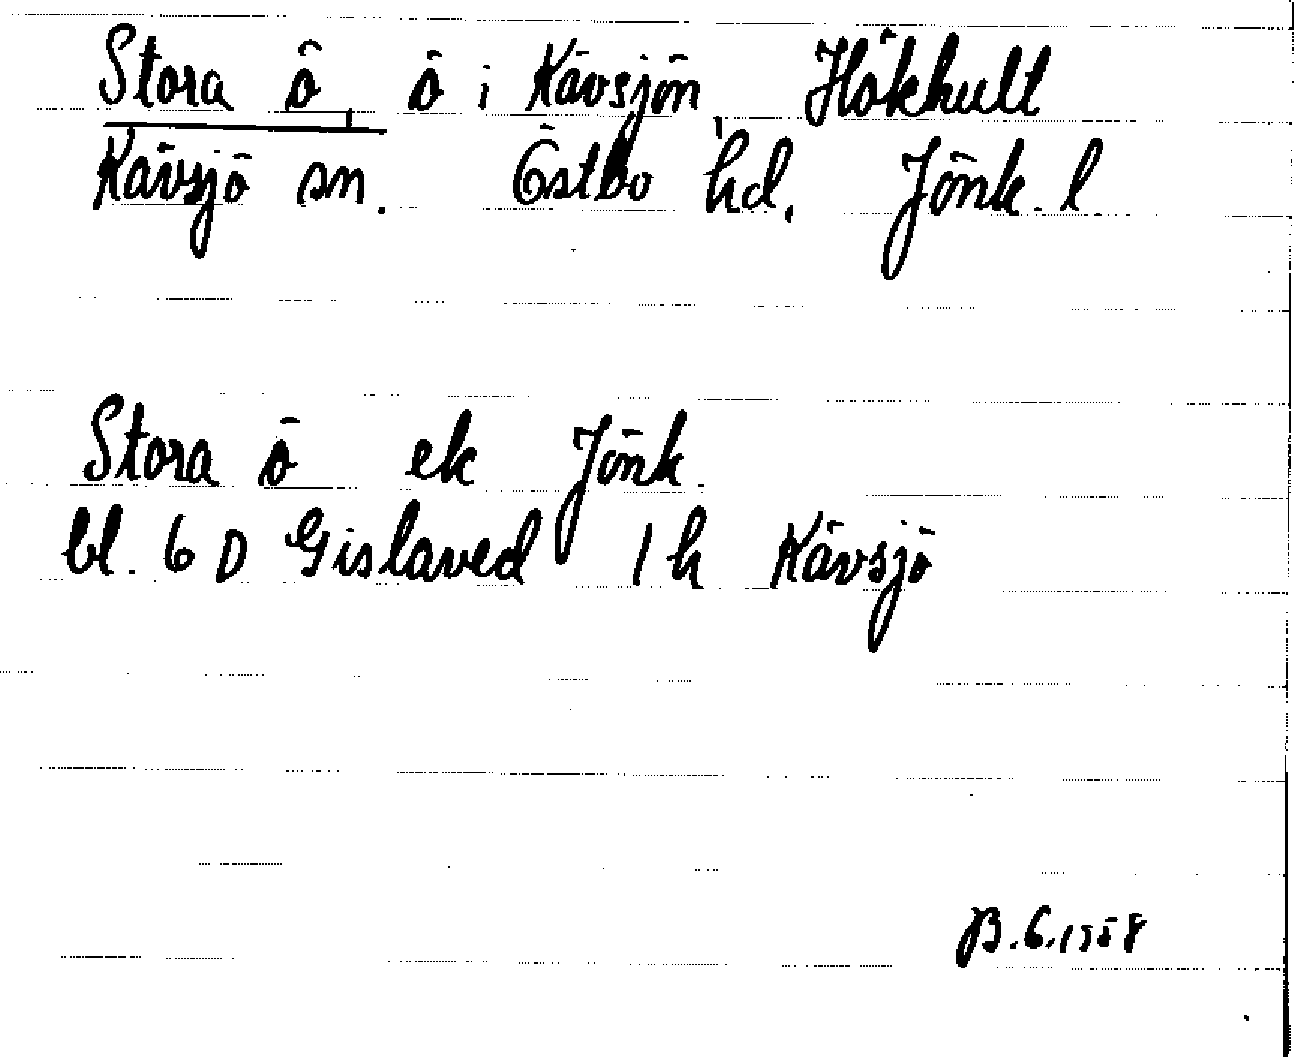 Stora ö, ö i Kävsjön, Hökhult
Kävsjö sn. Östbo hd. Jönk. l.
Stora ö ek Jönk.
bl. 6 D Gislaved 1 h Kävsjö